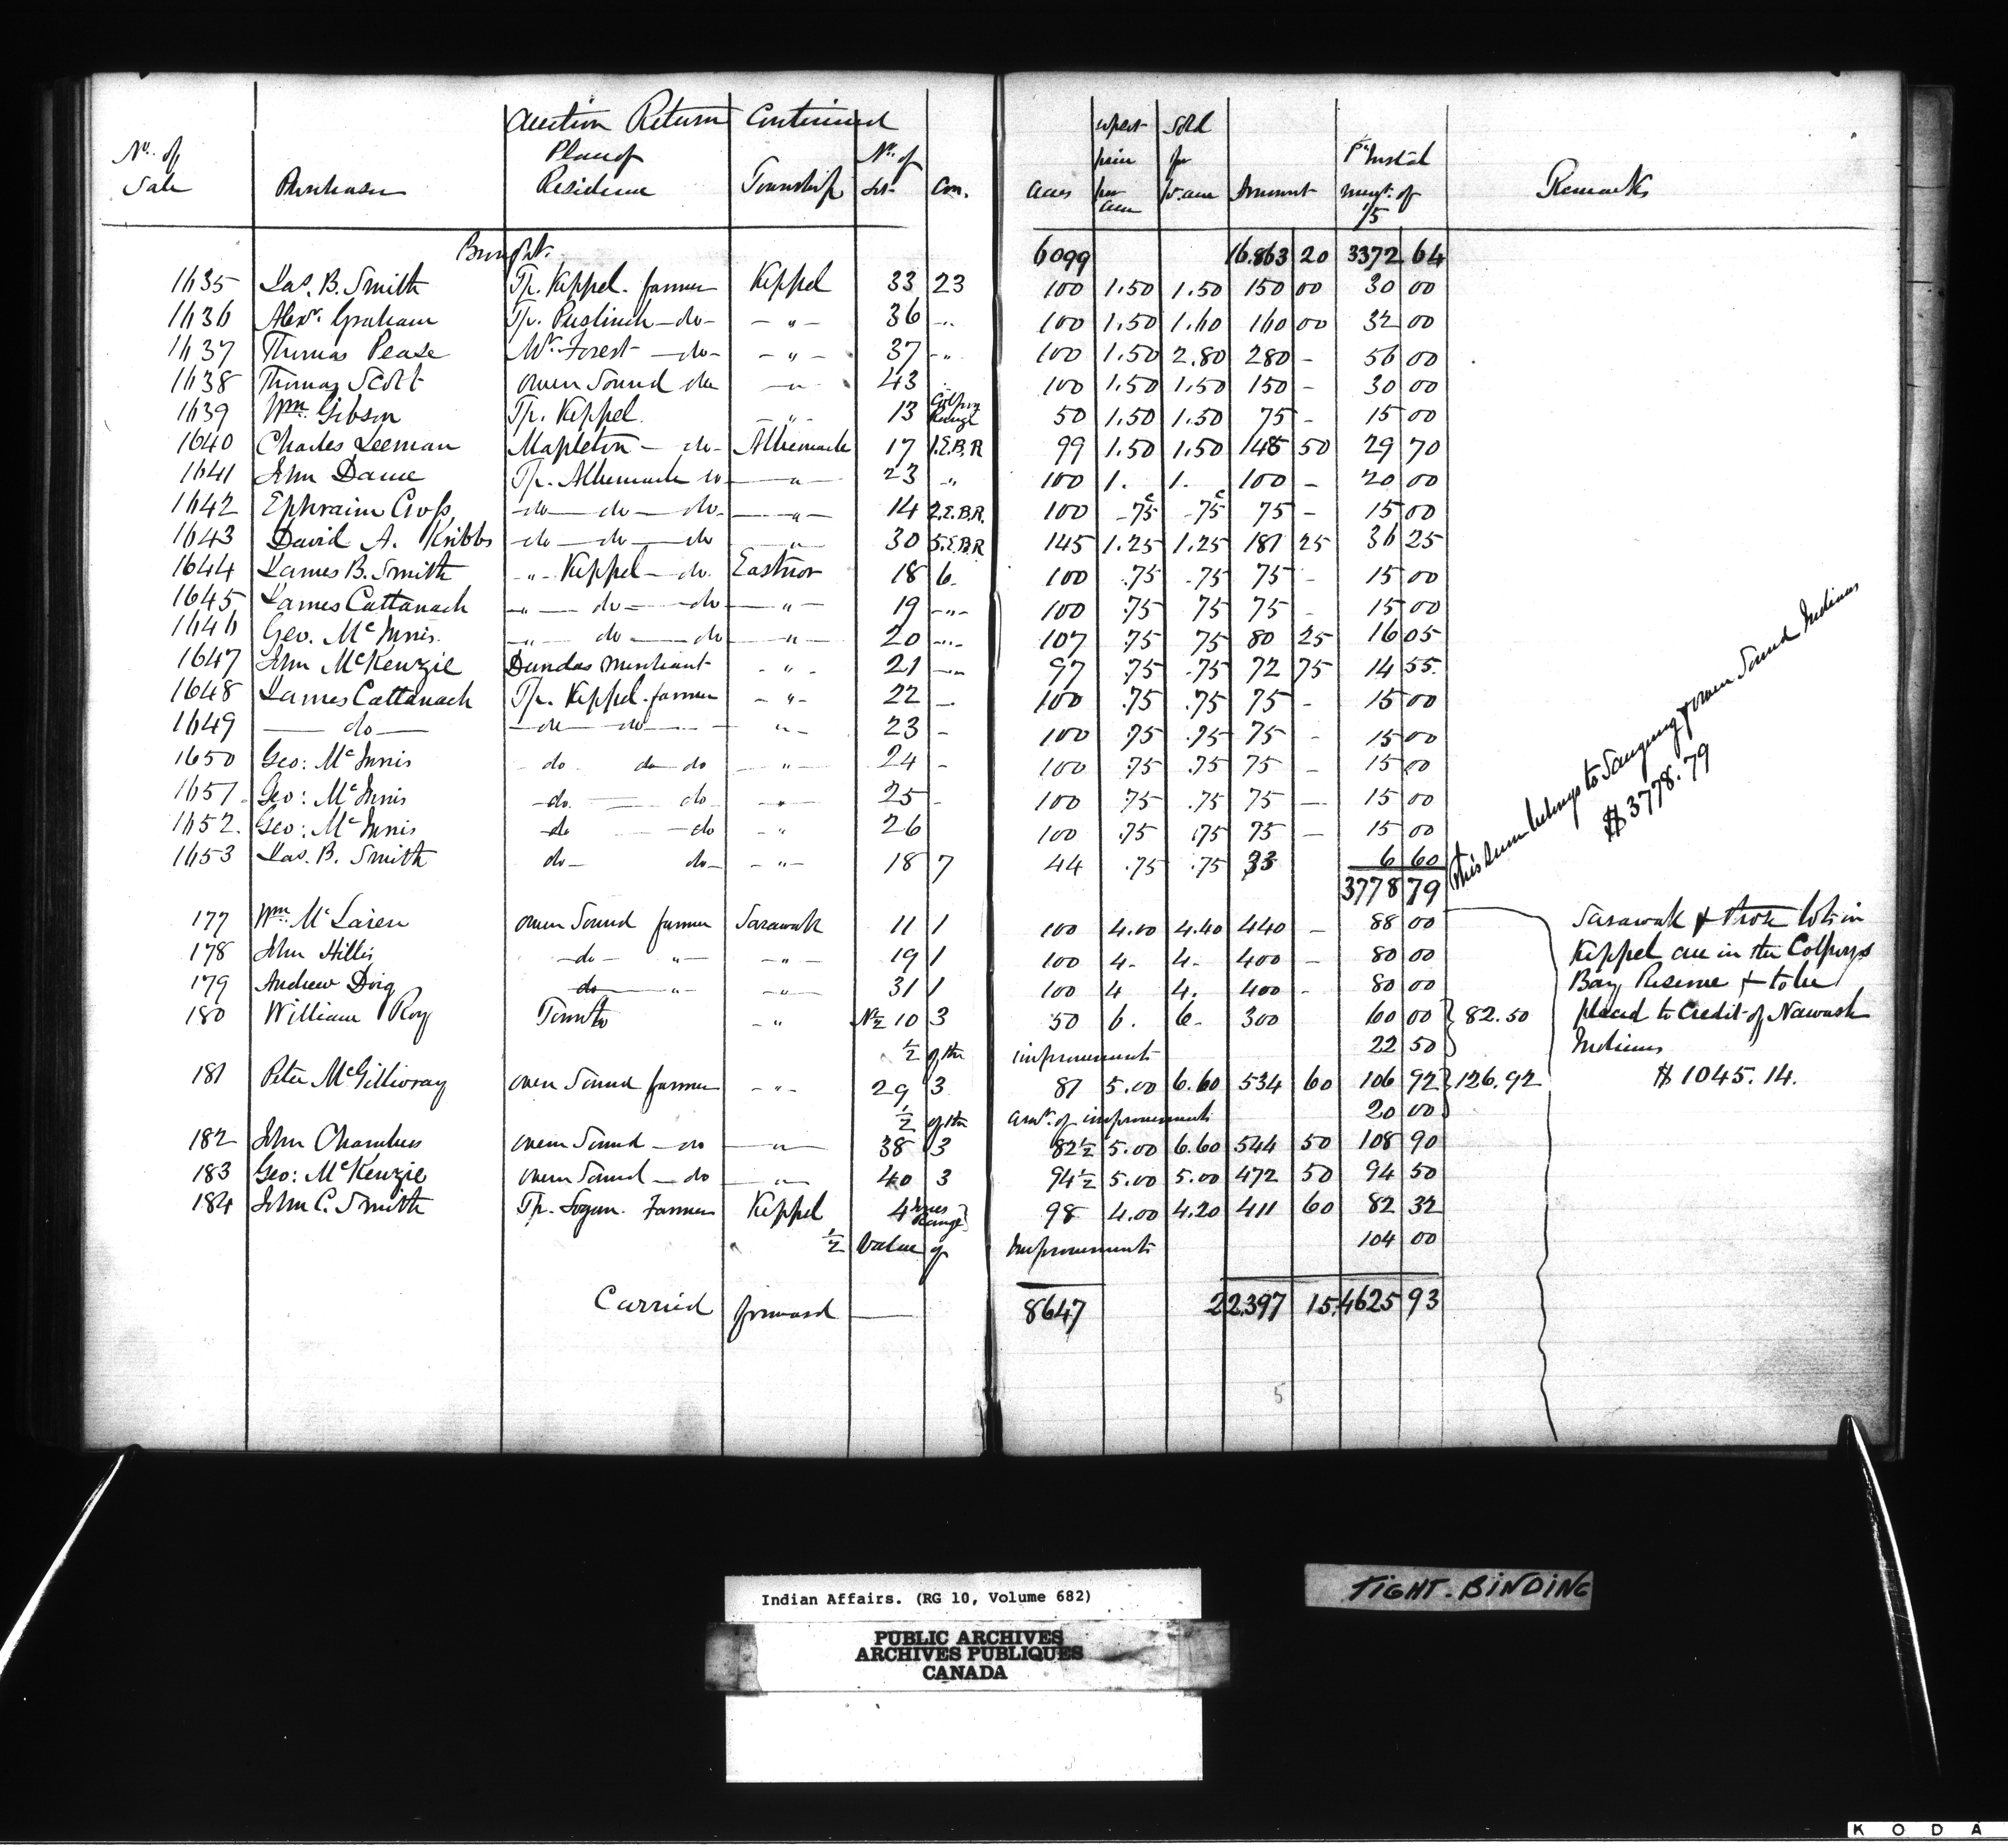 Auction Return Continued
No. of Sale | Purchaser | Place of Residence | Township | No. of Lot | Con. | Acres | Upset price per acre | Sold for pr. acre | Amount | 1st Instalment of 1/5 | Remarks
Brought. 6099 16.863 20 3372 64
1635 Jas. B. Smith Tp. Keppel farmer Keppel 33 23 100 1.50 1.50 150 00 30 00
1636 Alexr. Graham Tp. Puslinch - do - - " - 36 - " 100 1.50 1.60 160 00 32 00
1637 Thomas Pease Mt. Forest - do - - " - 37 - " 100 1.50 2.80 280 - 56 00
1638 Thomas Scott Owen Sound do - " - 43 100 1.50 1.50 150 - 30 00
1639 Wm. Gibson Tp. Keppel - " - 13 Colpoy Range 50 1.50 1.50 75 - 15 00
1640 Charles Leeman Mapleton - do - Albemarle 17 1.E.B.R 99 1.50 1.50 148 50 29 70
1641 John Dame Tp. Albemarle do - " - 23 " 100 1. 1. 100 - 20 00
1642 Ephraim Cross - do - do - do - - " - 14 2.E.B.R. 100 - 75c - 75c 75 - 15 00
1643 David A. Kribbs - do - do - do - " - 30 5.E.B.R 145 1.25 1.25 181 25 36 25
1644 James B. Smith - " - Keppel - do. Eastnor 18 6. 100 .75 .75 75 - 15 00
1645 James Cattanach - " - do - do - " - 19 - " - 100 .75 75 75 - 15 00
1646 Geo. McInnis. - " - do - do - " - 20 - " - 107 .75 75 80 25 16 05
1647 John McKenzie Dundas Merchant - " - 21 - " - 97 .75 .75 72 75 14 55.
1648 James Cattanach Tp. Keppel farmer - " - 22 - 100 .75 .75 75 - 15 00
1649 - do - - do - do - " - 23 - 100 .75 .75 75 - 15 00
1650 Geo: McInnis - do do - do - " - 24 - 100 75 .75 75 - 15 00
1651. Geo: McInnis - do. - do. - " - 25 - 100 75 .75 75 - 15 00
1652. Geo: McInnis - do - do - " 26 100 .75 .75 75 - 15 00
1653 Jas. B. Smith do - do - - " - 18 7 44 .75 .75 33 6 60
3778 79
This sum belongs to Saugeeng & Owen Sound Indians
$3778.79
177 Wm. McLaren Owen Sound farmer Sarawak 11 1 100 4.00 4.40 440 - 88 00
178 John Hillis - do - " - - " - 19 1 100 4. 4. 400 - 80 00
179 Andrew Doig do - " - - " - 31 1 100 4 4. 400 - 80 00
180 William Roy Toronto - " N½ 10 3 50 6. 6. 300 60 00 } 82.50
½ of the improvements 22 50
181 Peter McGillivray Owen Sound farmer - " - 29 3 81 5.00 6.60 534 60 106 92 } 126.92
½ of the amt. of improvements 20 00
182 John Chambers Owen Sound - do - " - 38 3 82½ 5.00 6.60 544 50 108 90
183 Geo: McKenzie Owen Sound - do - " - 40 3 94½ 5.00 5.00 472 50 94 50
184 John C. Smith Tp. Logan. Farmer Keppel 4 Jones Range 98 4.00 4.20 411 60 82 32
½ Value of Improvements 104 00
Sarawak & those lots in
Keppel are in the Colpoys
Bay Reserve & to be
placed to Credit of Nawash
Indians
$1045.14.
Carried forward - 8647 22397 15. 4625 93
5
Indian Affairs. (RG 10, Volume 682)
PUBLIC ARCHIVES
ARCHIVES PUBLIQUES
CANADA
TIGHT-BINDING
KODA